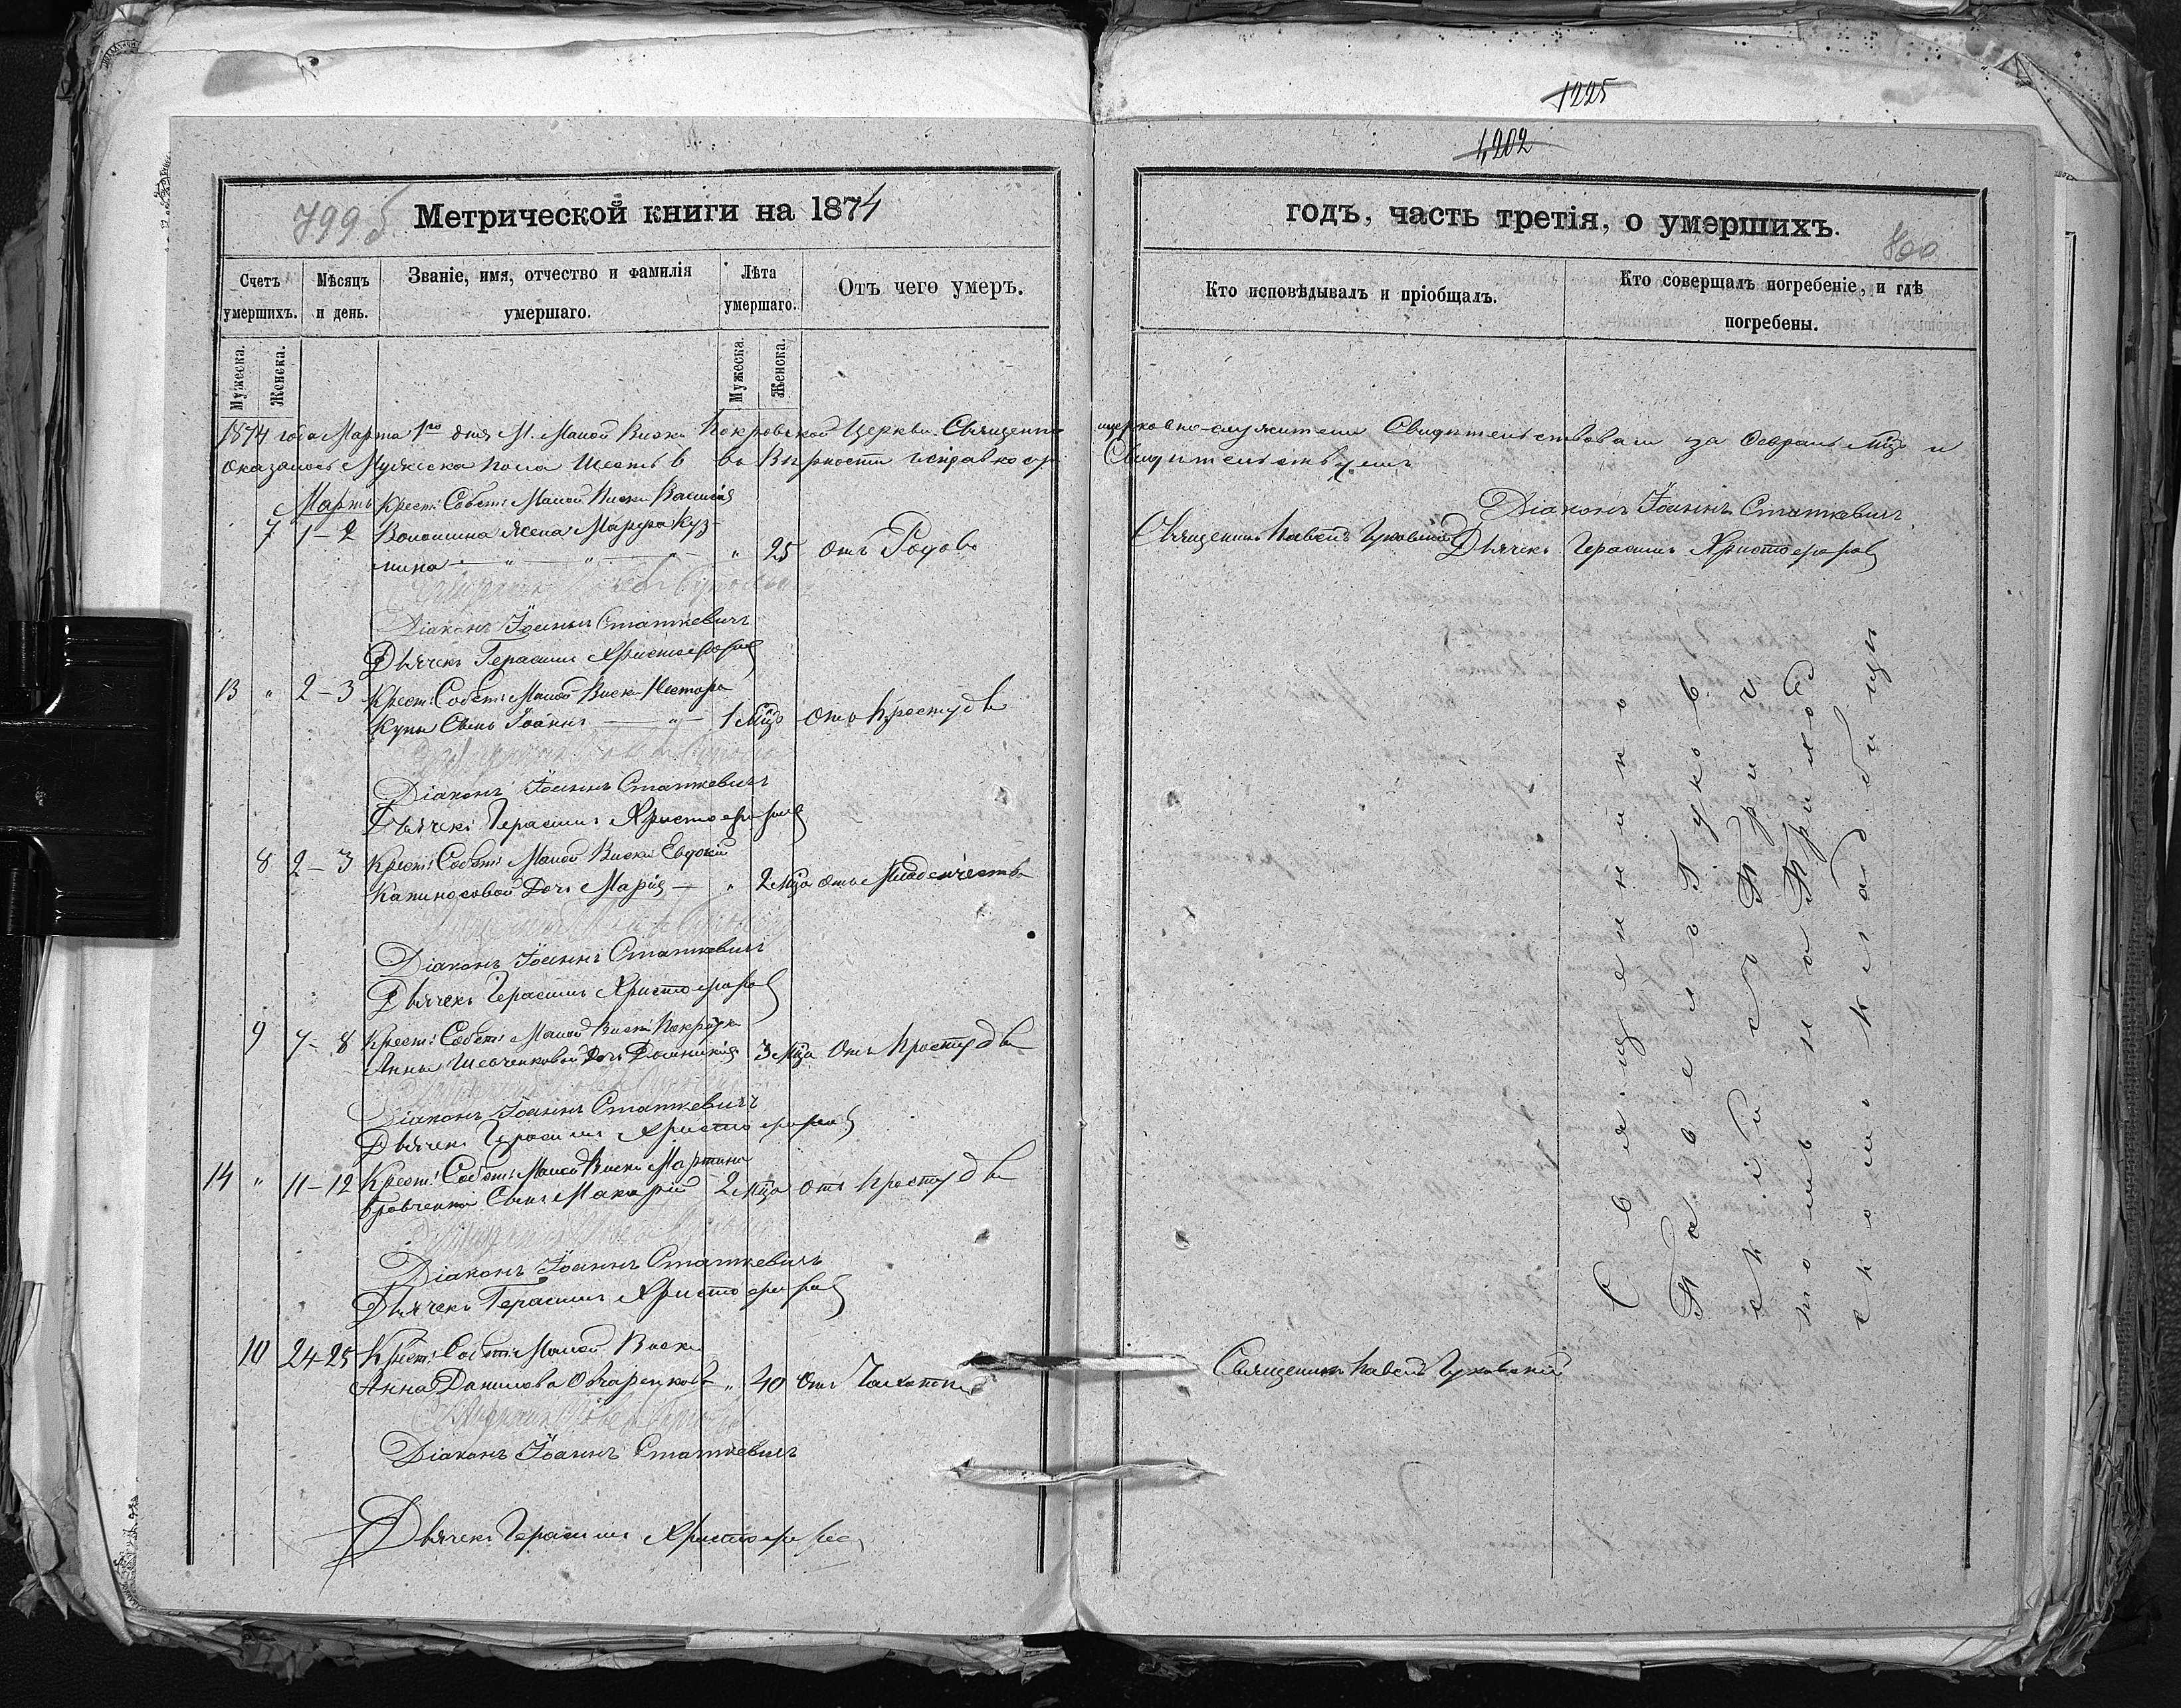 1225
1202
799 б
Метрической книги на 1874
годъ, часть третія, о умершихъ.
800
Счетъ умершихъ.
Мѣсяцъ и день.
Званіе, имя, отчество и фамилія умершаго.
Лѣта умершаго.
Отъ чего умеръ.
Кто исповѣдывалъ и пріобщалъ.
Кто совершалъ погребеніе, и гдѣ погребены.
Мужеска.
Женска.
Мужеска.
Женска.
1874 года Марта 1го дня М. Малой Виски Покровской Церкви Священно
церковно-служители Свидѣтельствовали за Февраль мцъ и
оказалось Мужеска пола Шесть 6 въ Вѣрности
Свидѣтельствуемъ
Мартъ
Крест: Собст: Малой Виски Василія
7 1-2 Волошина жена Марѳа Куз-
мина — „ — „ — „ 25 Отъ Родовъ
Священникъ Павелъ Гуковскій
Діаконъ Іоаннъ Статкевичъ
Дьячекъ Герасимъ Христофоровъ
Діаконъ Іоаннъ Статкевичъ
Дьячекъ Герасимъ Христофоровъ
13 „ 2-3 Крест: Собст: Малой Виски Нестора
Купы Сынъ Іоаннъ — „ — 1 мцъ Отъ Простуды
Діаконъ Іоаннъ Статкевичъ
Дьячекъ Герасимъ Христофоровъ
8 2-3 Крест: Собст: Малой Виски Евдокіи
Капиносовой Дочь Марія — „ 2 мца Отъ Младенчества
Діаконъ Іоаннъ Статкевичъ
Дьячекъ Герасимъ Христофоровъ
9 7-8 Крест: Собст: Малой Виски Покрытки
Анны Шевченковой Дочь Домникія 3 мца Отъ Простуды
Діаконъ Іоаннъ Статкевичъ
Дьячекъ Герасимъ Христофоровъ
14 „ 11-12 Крест: Собст: Малой Виски Мартина
Бровченка Сынъ Макарій 2 мца Отъ Простуды
Діаконъ Іоаннъ Статкевичъ
Дьячекъ Герасимъ Христофоровъ
10 24-25 Крест: Собст: Малой Виски
Анна Данилова Овчаренкова „ 40 Отъ Чахотки
Священникъ Павелъ Гуковскій
Діаконъ Іоаннъ Статкевичъ
Дьячекъ Герасимъ Христофоровъ
Священникъ
Павелъ Гуков
скій съ Прич
томъ на Приход
скомъ кладбищѣ